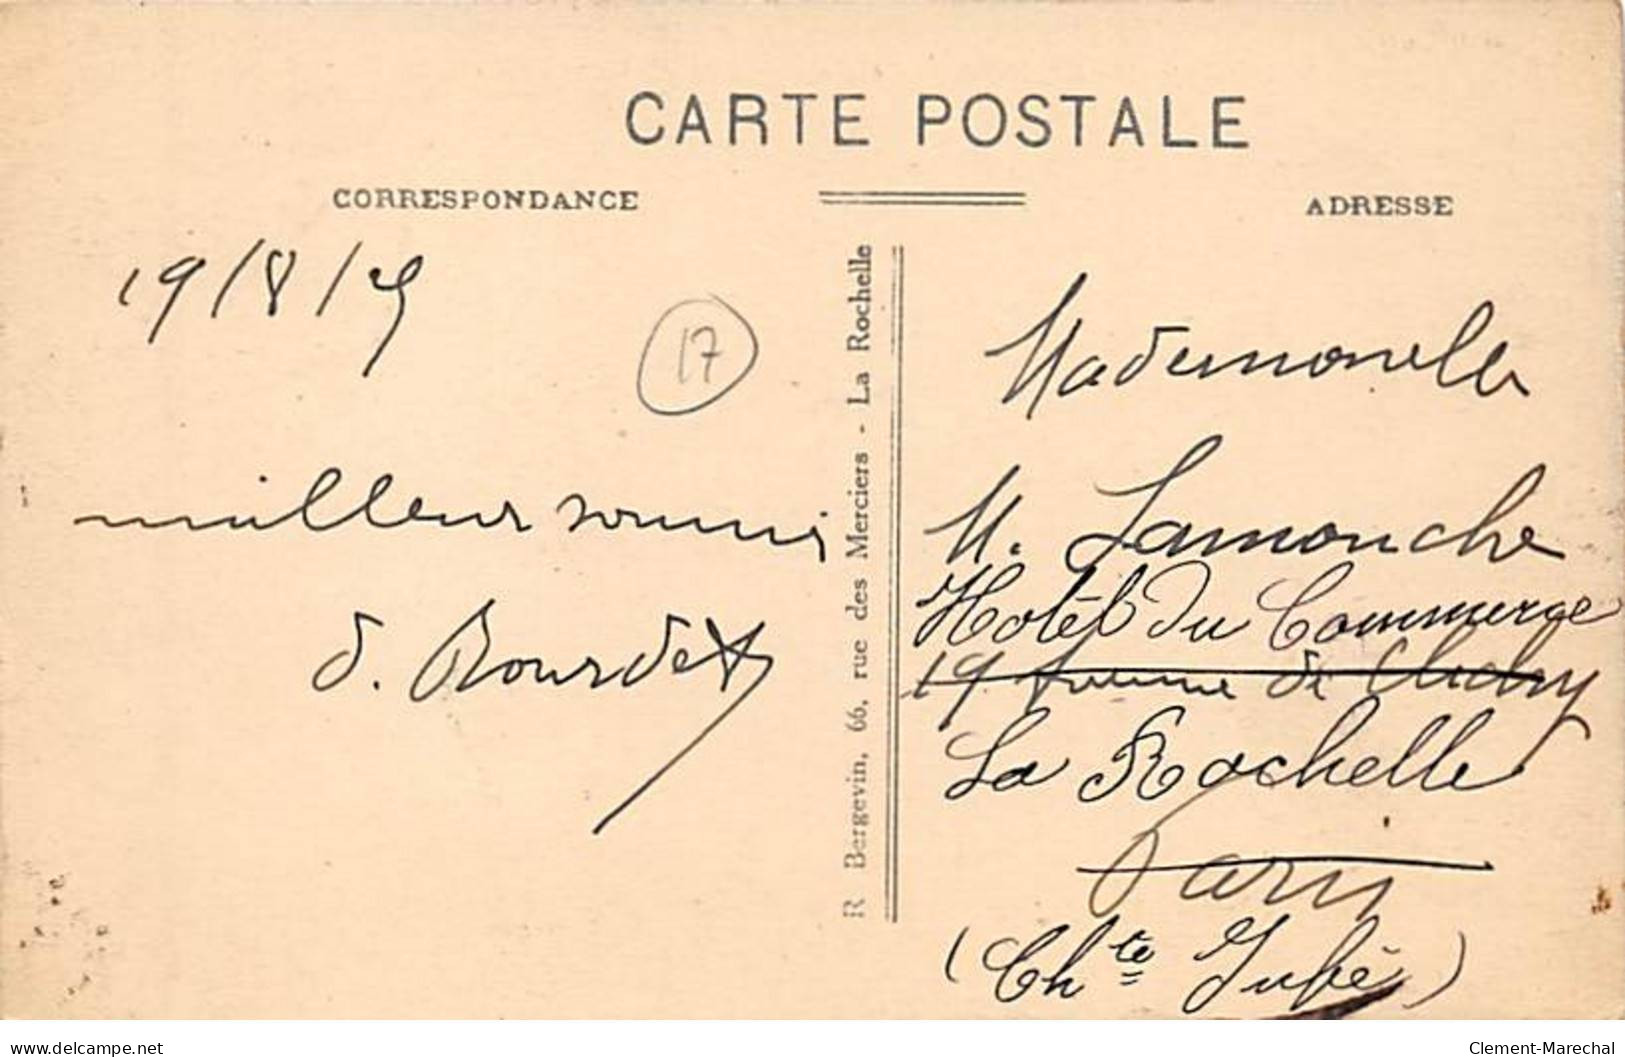 CARTE POSTALE
CORRESPONDANCE
ADRESSE
19/8/
17
meilleur souvenir
d. Bourdet
R Bergevin, 66, rue des Merciers - La Rochelle
Mademoiselle
M. Lamouche
Hotêl du Commerce
19 Avenue de Clichy
La Rochelle
Paris
(Chte Infre)
delcampe.net
Clement-Marechal